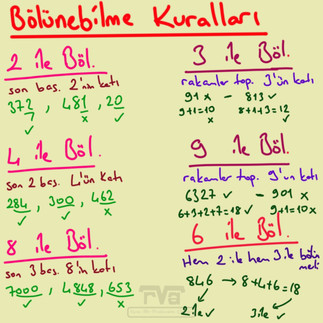 Bölünebilme Kuralları
2 ile Böl.
son bas. 2'nin katı
372, 481, 20
✓ x ✓
4 ile Böl.
son 2 bas. 4'ün katı
284, 300, 462
✓ ✓ x
8 ile Böl.
son 3 bas. 8'in katı
7000, 4848, 653
✓ ✓ x
3 ile Böl.
rakamlar top. 3'ün katı
91 x - 813 ✓
9+1=10 8+1+3=12
x ✓
9 ile Böl.
rakamlar top. 9'un katı
6327 ✓ - 901 x
6+3+2+7=18 ✓ 9+1=10 x
6 ile Böl.
Hem 2 ile hem 3 ile bölün
meli
846 → 8+4+6=18
2 ile ✓ 3 ile ✓
rva